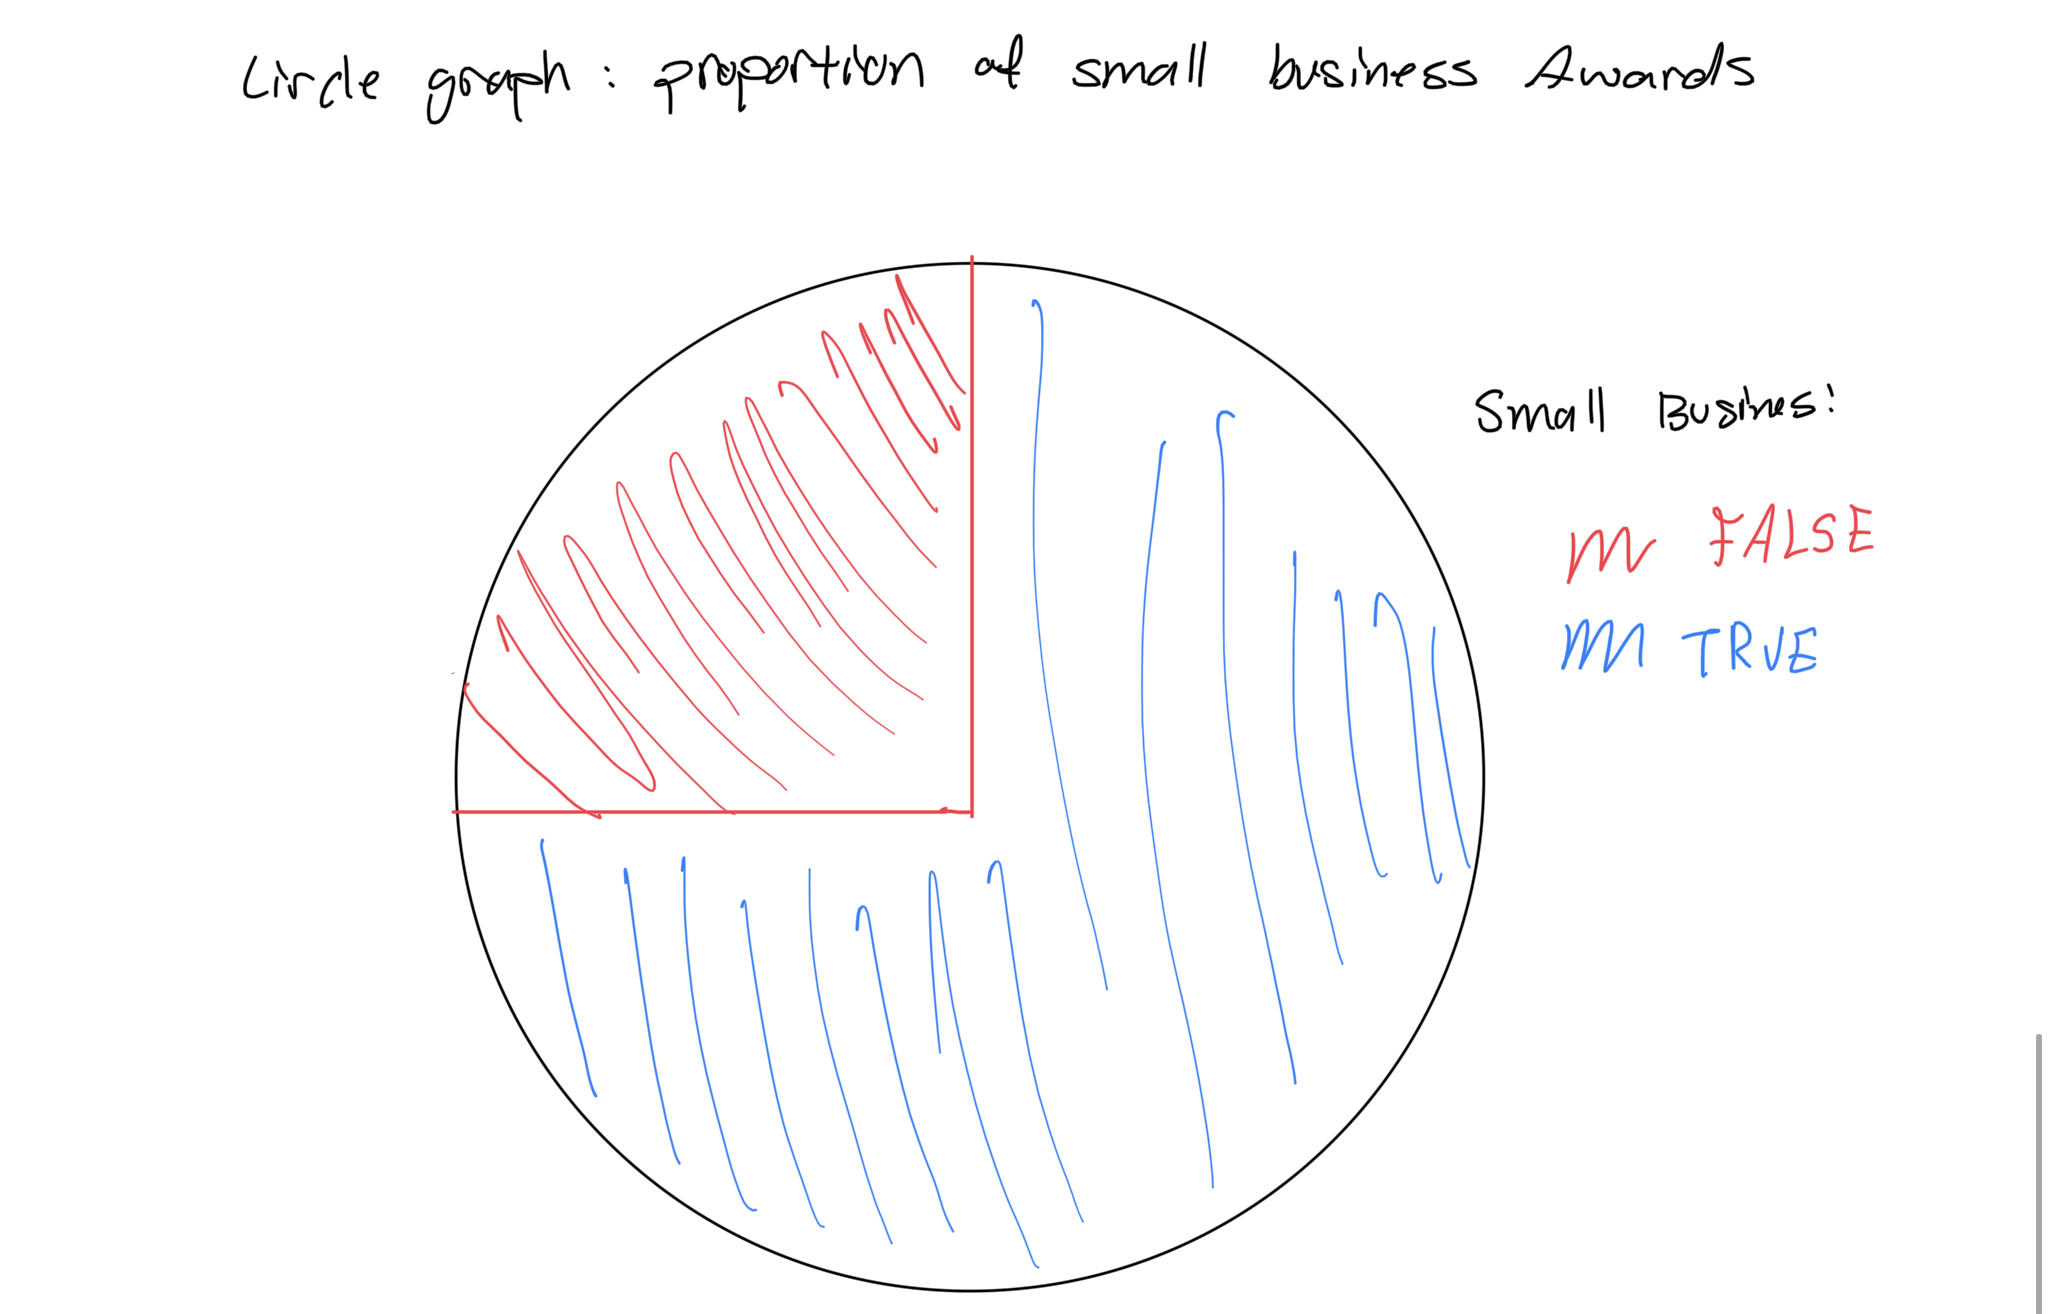 Circle graph : proportion of small business Awards
Small Busines:
FALSE
TRUE